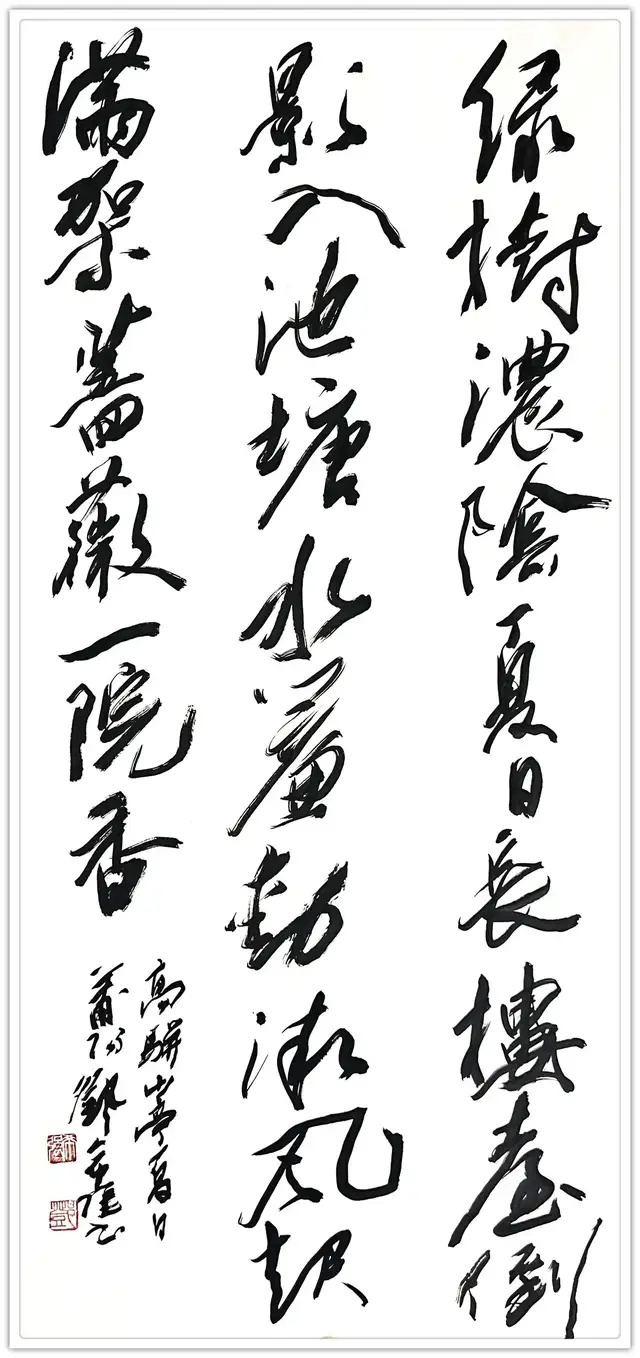 绿樹濃陰夏日長樓臺倒
影入池塘水簾動微風起
满架薔薇一院香
高駢山亭夏日
莆阳